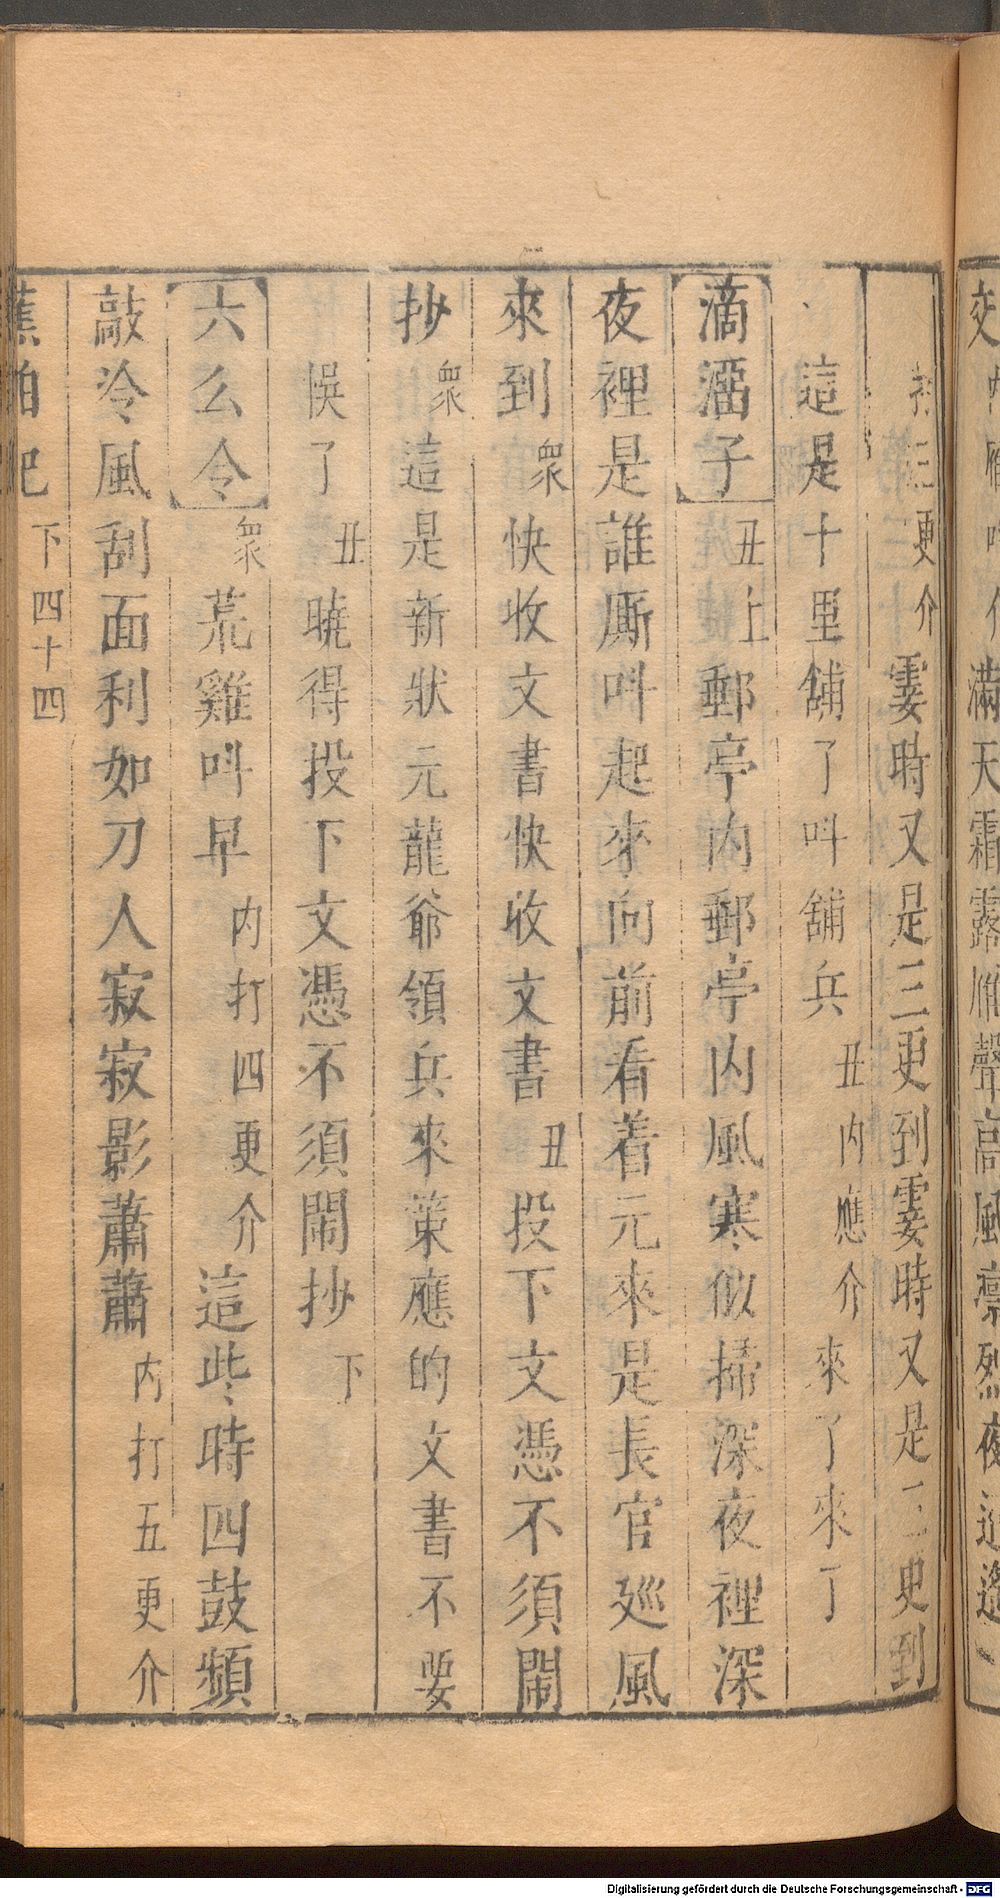 交 內雁叫介 滿天霜露雁聲高風凛烈夜迢遙
打三更介 霎時又是三更到霎時又是三更到
這是十里舖了叫舖兵 丑內應介 來了來了
滴溜子 丑上 郵亭內郵亭內風寒似掃深夜裡深
夜裡是誰厮叫起來向前看着元來是長官廵風
來到 衆 快收文書快收文書 丑 投下文憑不須閙
抄 衆 這是新狀元龍爺領兵來策應的文書不要
悞了 丑 曉得投下文憑不須閙抄 下
六么令 衆 荒雞叫早 內打四更介 這些時四鼓頻
敲冷風刮面利如刀人寂寂影蕭蕭 內打五更介
蕉帕記 下四十四
Digitalisierung gefördert durch die Deutsche Forschungsgemeinschaft - DFG